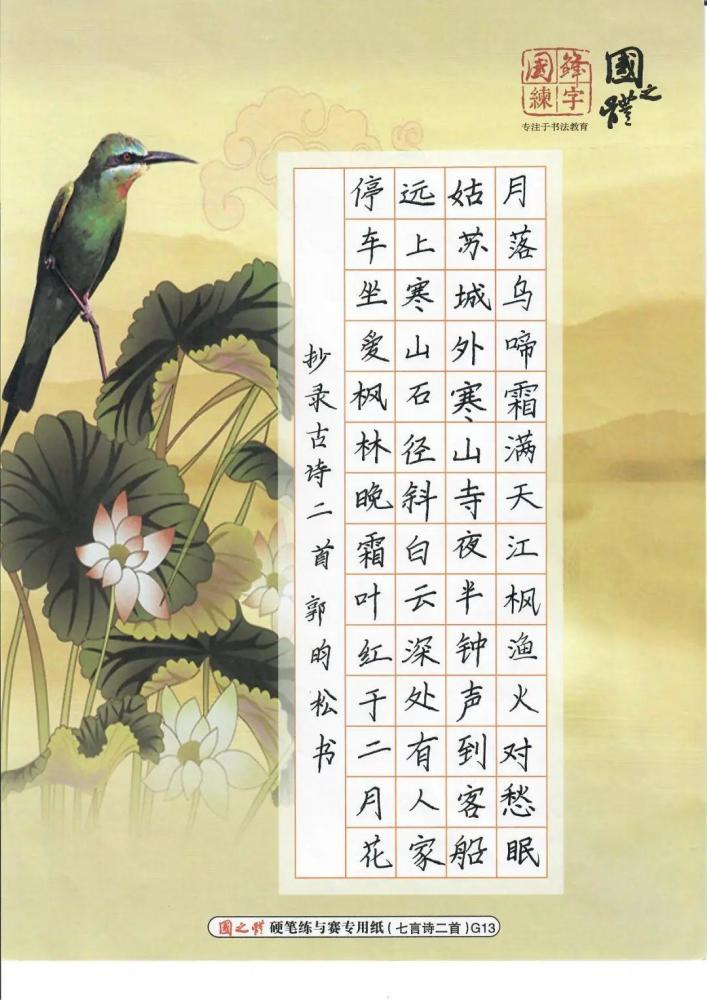 國之體
鋒字國練
专注于书法教育
月落乌啼霜满天江枫渔火对愁眠
姑苏城外寒山寺夜半钟声到客船
远上寒山石径斜白云深处有人家
停车坐爱枫林晚霜叶红于二月花
抄录古诗二首 郭昀松书
國之體 硬笔练与赛专用纸(七言诗二首)G13